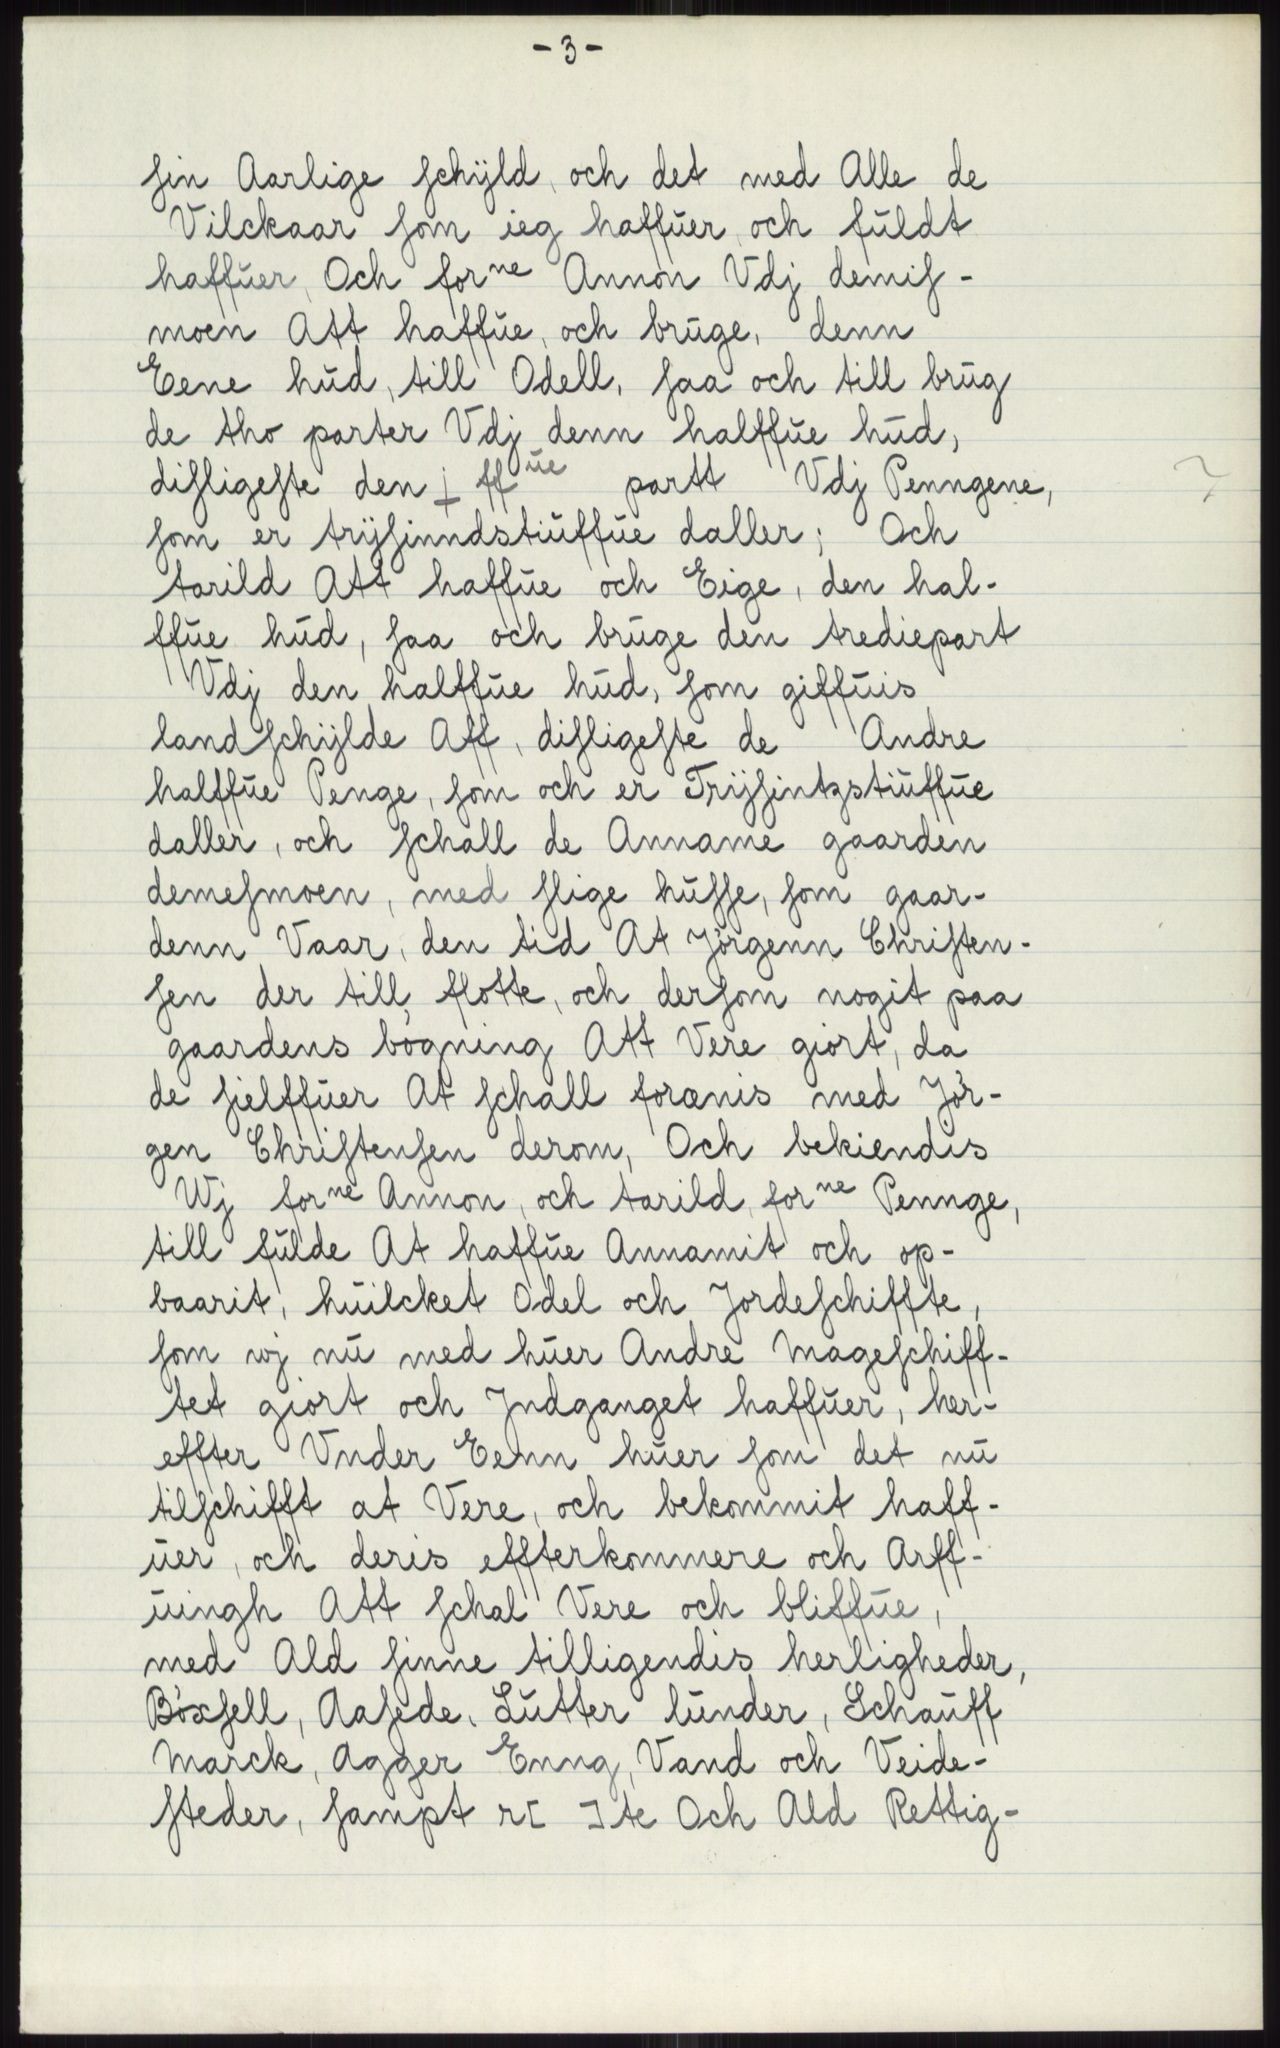 - 3 -
ſin Aarlige ſchÿld, och det med Alle de
Vilckaar ſom ieg haffŭer, och fŭldt
haffŭer, Och forne Annon Vdj demiſ-
moen Att haffŭe, och brŭge, denn
Eene hŭd, till Odell, ſaa och till brŭg
de tho parter Vdj denn halffŭe hŭd,
diſligeſte den ½ ffŭe partt Vdj Penngene,
ſom er trÿſinndstiŭffŭe daller; Och
tarild Att haffŭe och Eige, den hal-
ffŭe hŭd, ſaa och brŭge den trediepart
Vdj den halffŭe hŭd, ſom giffŭis
landſchÿlde Aff, diſligeſte de Andre
halffŭe Penge, ſom och er Trÿſintzstiŭffŭe
daller, och ſchall de Anname gaarden
demeſmoen, med ſlige hŭſſe, ſom gaar-
denn Vaar, den tid At Jörgenn Chriſten-
ſen der till flotte, och derſom nogit paa
gaardens bögning Att Vere giort, da
de ſielffŭer At ſchall forænis med Jör-
gen Chriſtenſen derom, Och bekiendis
Wj forne Annon, och tarild, forne Pennge,
till fŭlde At haffŭe Annamit och op-
baarit, hŭilcket Odel och Jordeſchiffte,
ſom wj nŭ med hŭer Andre Mageſchiff-
tet giort och Jndganget haffŭer, her-
effter Vnder Eenn hŭer ſom det nŭ
tilſchifft at Vere, och bekommit haff-
ŭer, och deris effterkommere och Arff-
ŭingh Att ſchal Vere och bliffŭe,
med Ald ſinne tilligendis herligheder,
Böxſell, Aaſede, Lŭtter lŭnder, Schaŭff
Marck, Agger Enng, Vand och Veide-
ſteder, ſampt r[ ]te Och Ald Rettig-